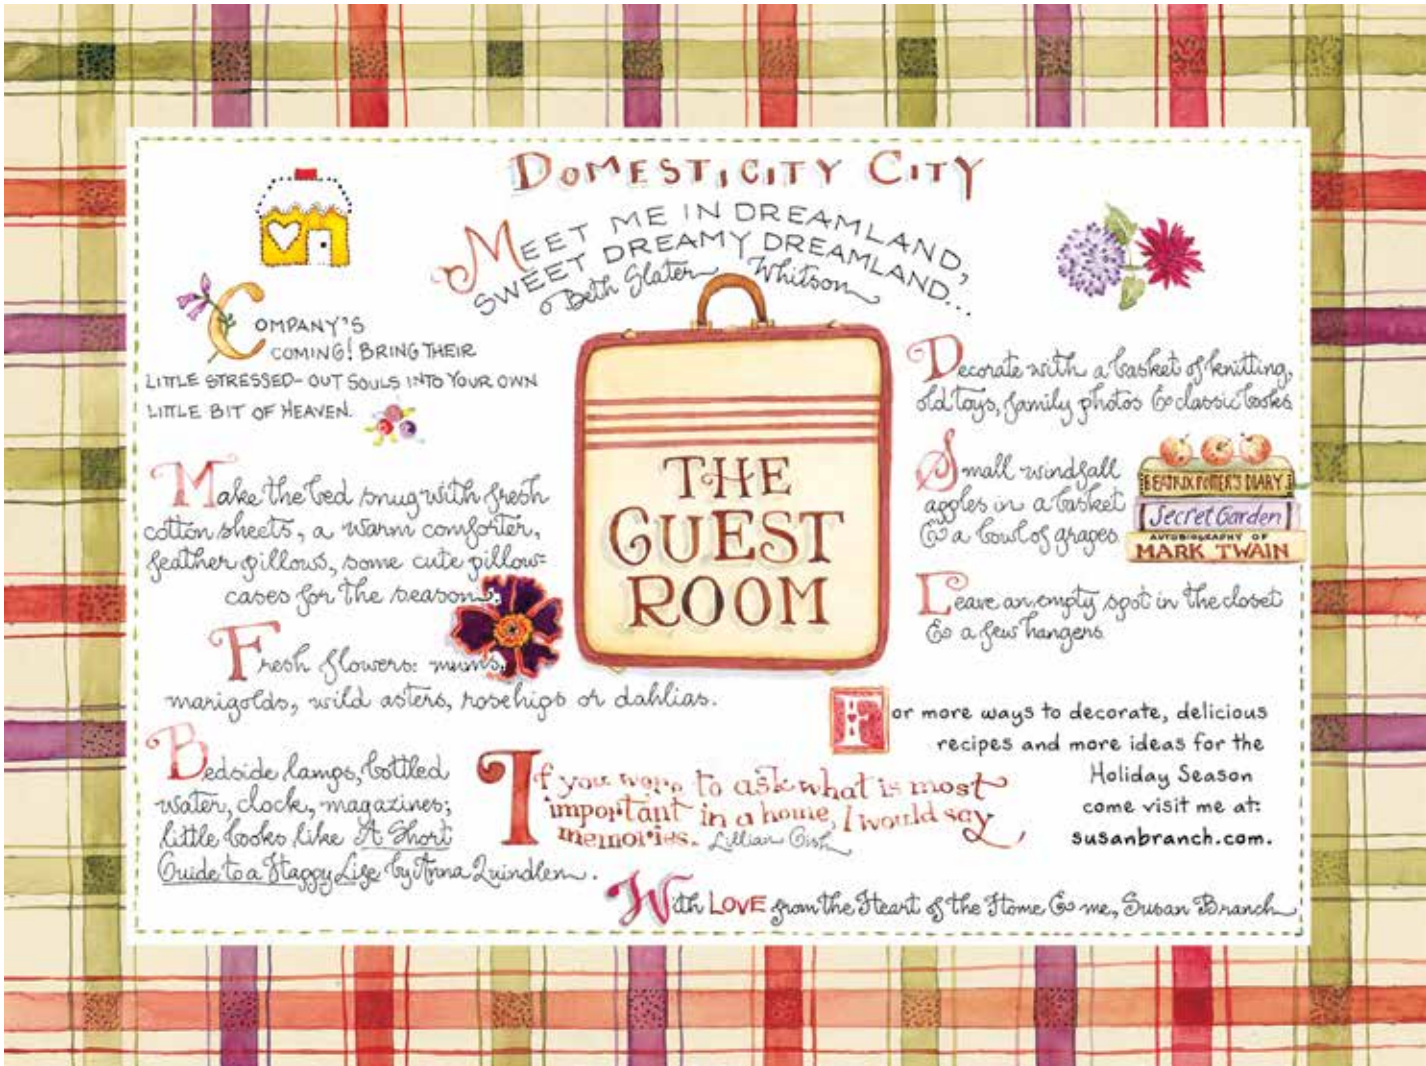 DOMESTICITY CITY
MEET ME IN DREAMLAND,
SWEET DREAMY DREAMLAND...
Beth Slater Whitson
COMPANY'S
COMING! BRING THEIR
LITTLE STRESSED-OUT SOULS INTO YOUR OWN
LITTLE BIT OF HEAVEN.
Make the bed snug with fresh
cotton sheets, a warm comforter,
feather pillows, some cute pillow=
cases for the season.
Fresh flowers: mums,
marigolds, wild asters, rosehips or dahlias.
Bedside lamps, bottled
water, clock, magazines;
little books like A Short
Guide to a Happy Life by Anna Quindlen.
THE
GUEST
ROOM
Decorate with a basket of knitting,
old toys, family photos & classic books.
Small windfall
apples in a basket
& a bowl of grapes.
BEATRIX POTTER'S DIARY
Secret Garden
AUTOBIOGRAPHY OF
MARK TWAIN
Leave an empty spot in the closet
& a few hangers.
For more ways to decorate, delicious
recipes and more ideas for the
Holiday Season
come visit me at:
susanbranch.com.
If you were to ask what is most
important in a home, I would say
memories. Lillian Gish
With LOVE from the Heart of the Home & me, Susan Branch